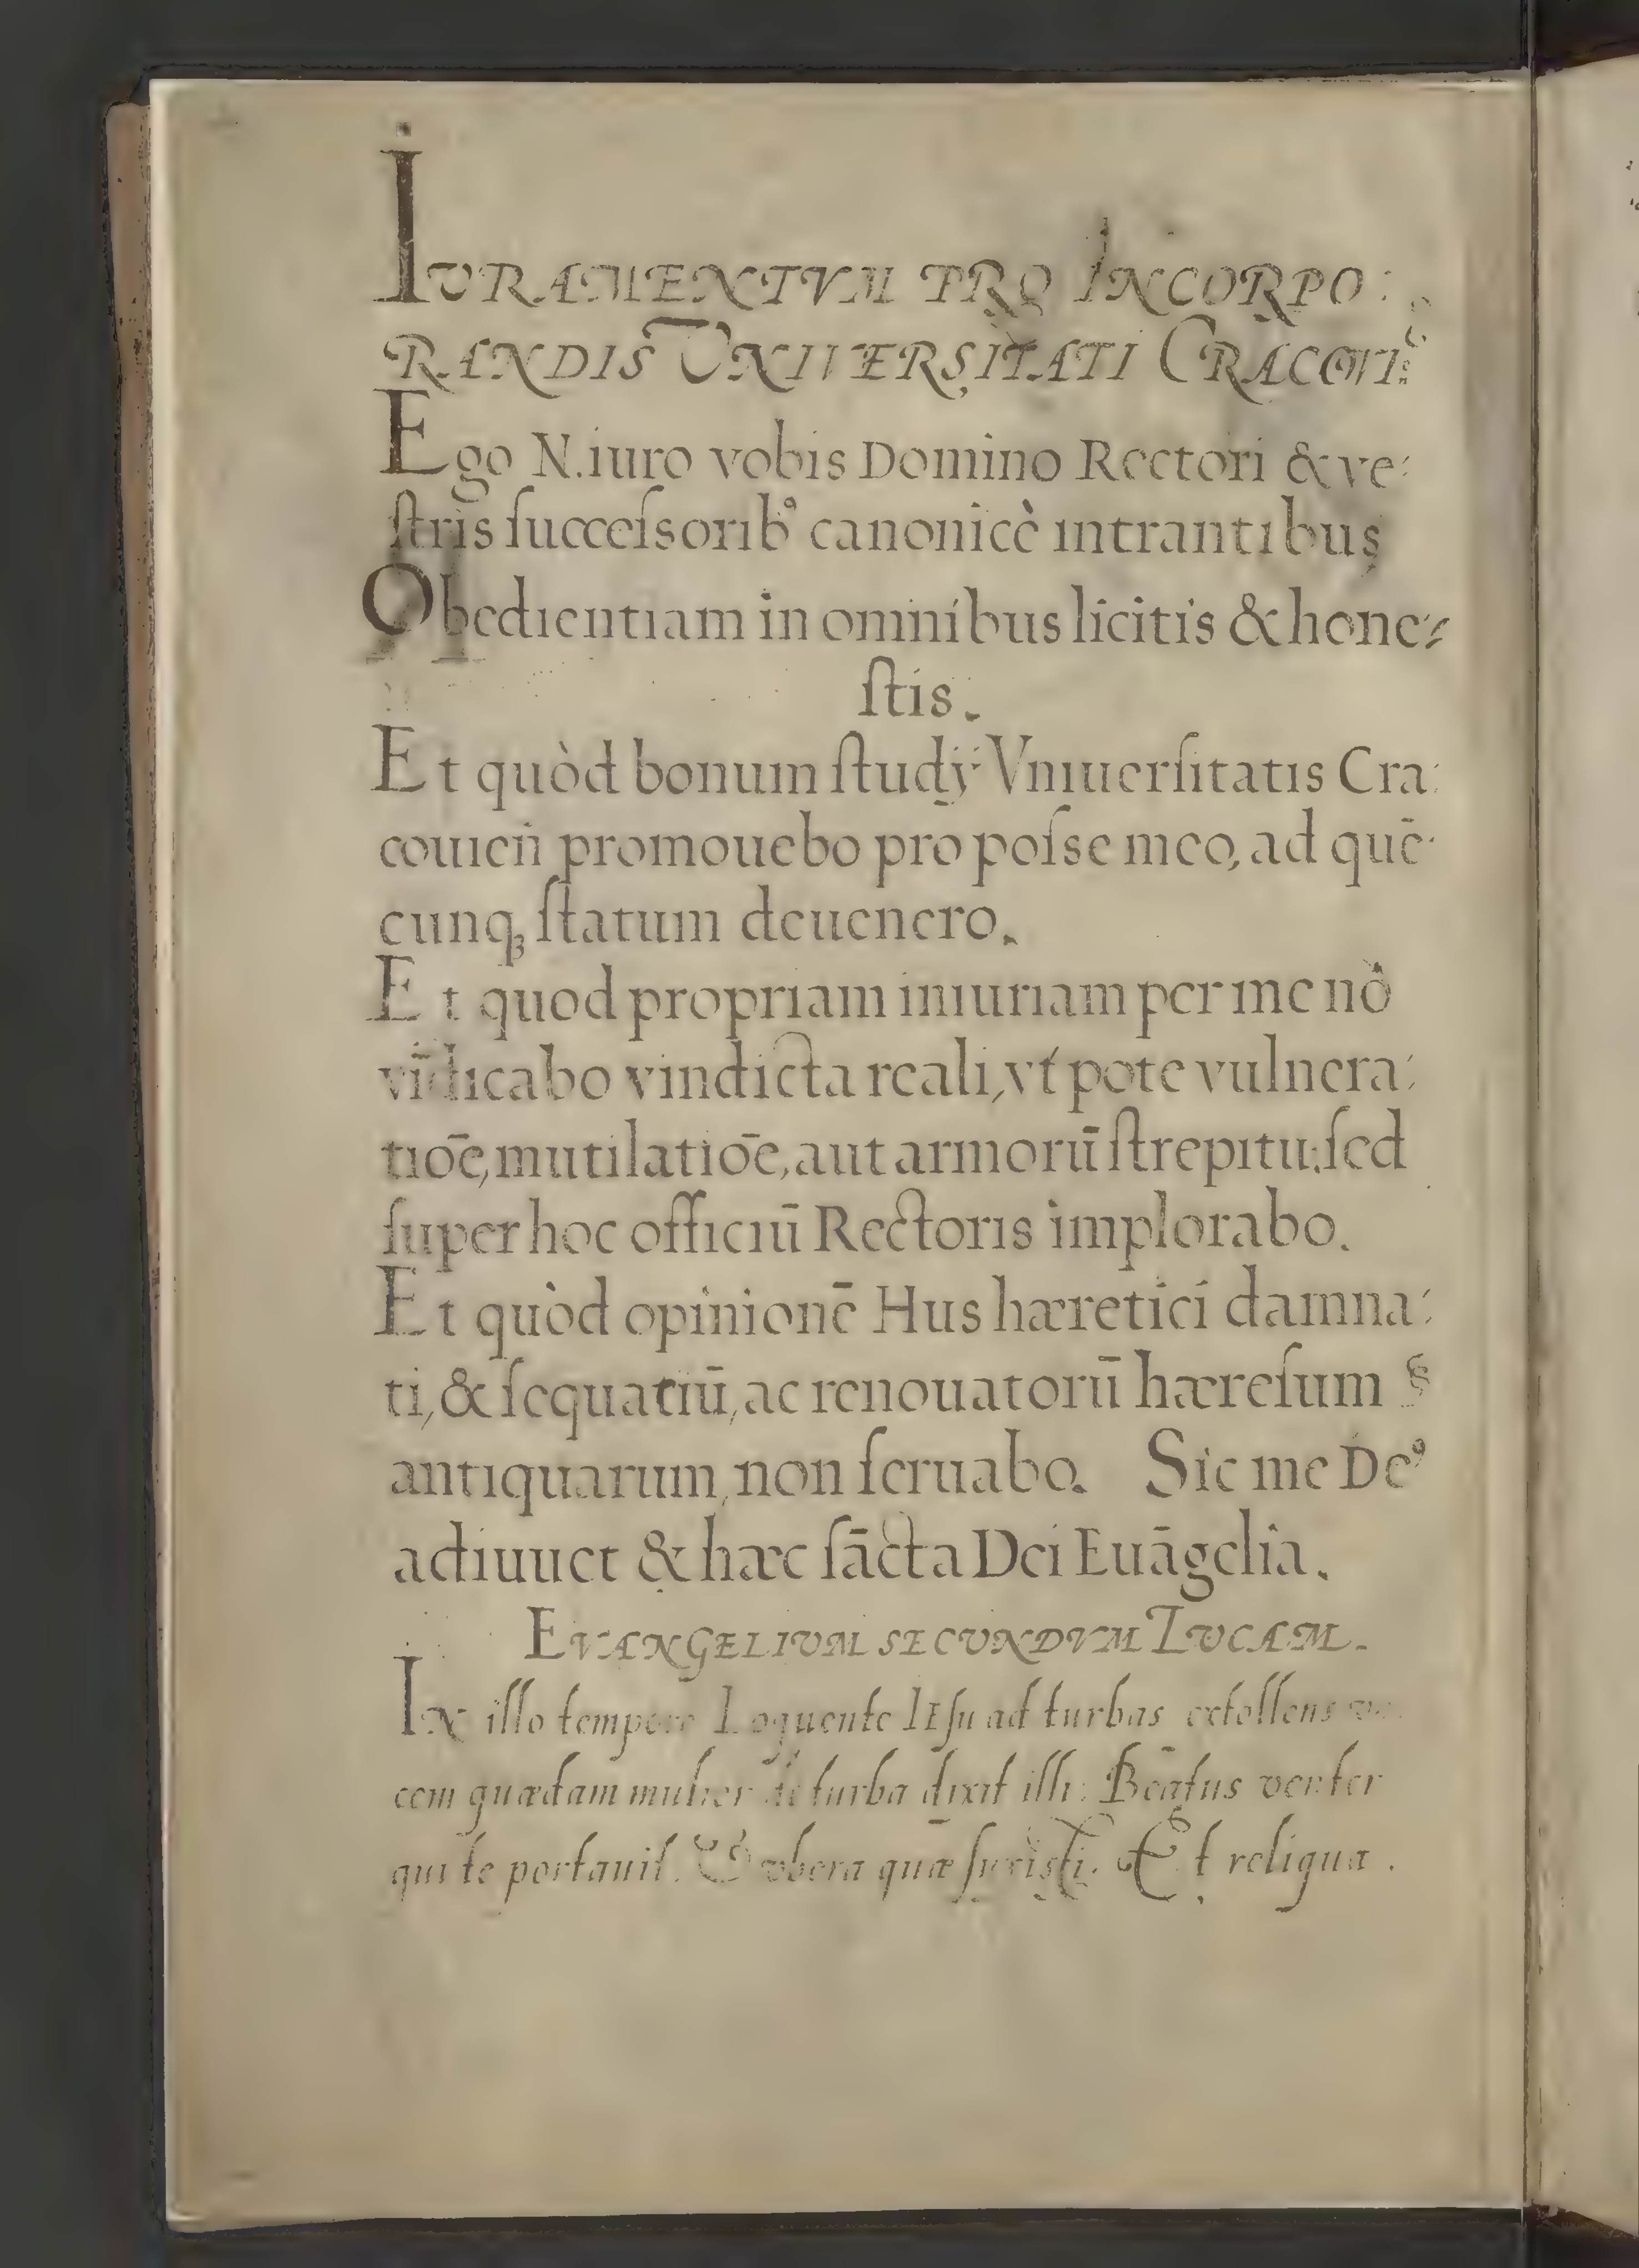 IVRAMENTVM PRO INCORPO:
RANDIS VNIVERSITATI CRACOVI:
Ego N. iuro vobis Domino Rectori & ve:
ſtris ſucceſsorib⁹ canonicè intrantibus
Obedientiam in omnibus licitis & hone:
ſtis.
Et quòd bonum ſtudÿ Vniuerſitatis Cra:
couien̄ promouebo pro poſse meo, ad quē:
cunqꝫ ſtatum deuenero.
Et quod propriam iniuriam per me nō
vīdicabo vindicta reali, vt pote vulnera:
tiōe, mutilatiōe, aut armorū ſtrepitu: ſed
ſuper hoc officiū Rectoris implorabo.
Et quòd opinionē Hus hæretici damna:
ti, & ſequatiū, ac renouatorū hæreſum
antiquarum, non ſeruabo. Sic me De⁹
adiuuet & hæc ſācta Dei Euāgelia.
EVANGELIVM SECVNDVM LVCAM.
IN illo tempore Loquente IEſu ad turbas extollens vo
cem quædam mulier de turba dixit illi: Beatus venter
qui te portauit. & vbera quæ ſuxisti. Et reliqua.